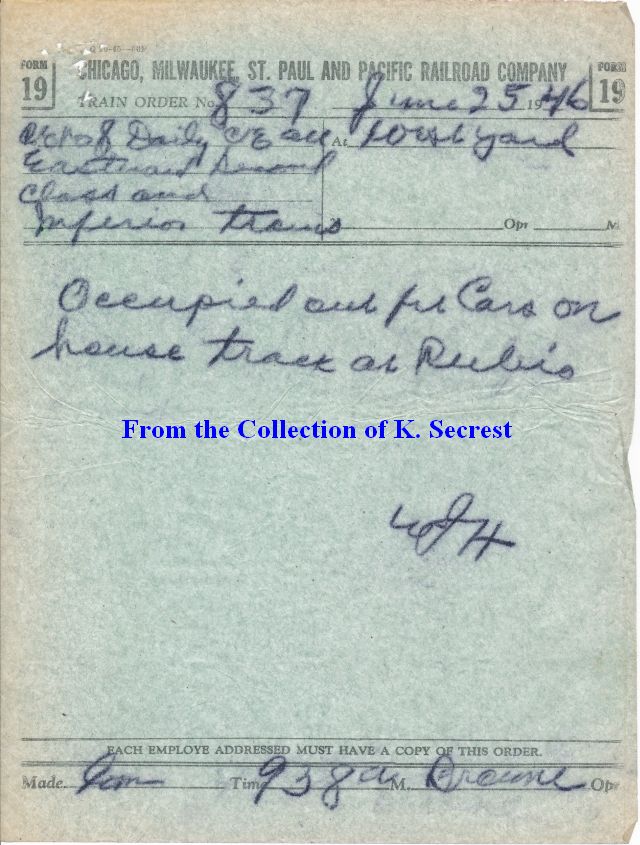 FORM 19
CHICAGO, MILWAUKEE, ST. PAUL AND PACIFIC RAILROAD COMPANY
FORM 19
TRAIN ORDER No. 837 June 25 1946
C&E all At West Yard
Eastward Second
Class and
Inferior trains Opr. M
Occupied out fit Cars on
house track at Rubio
From the Collection of K. Secrest
WJH
EACH EMPLOYE ADDRESSED MUST HAVE A COPY OF THIS ORDER.
Made Com Time 938 a M. Browne Opr